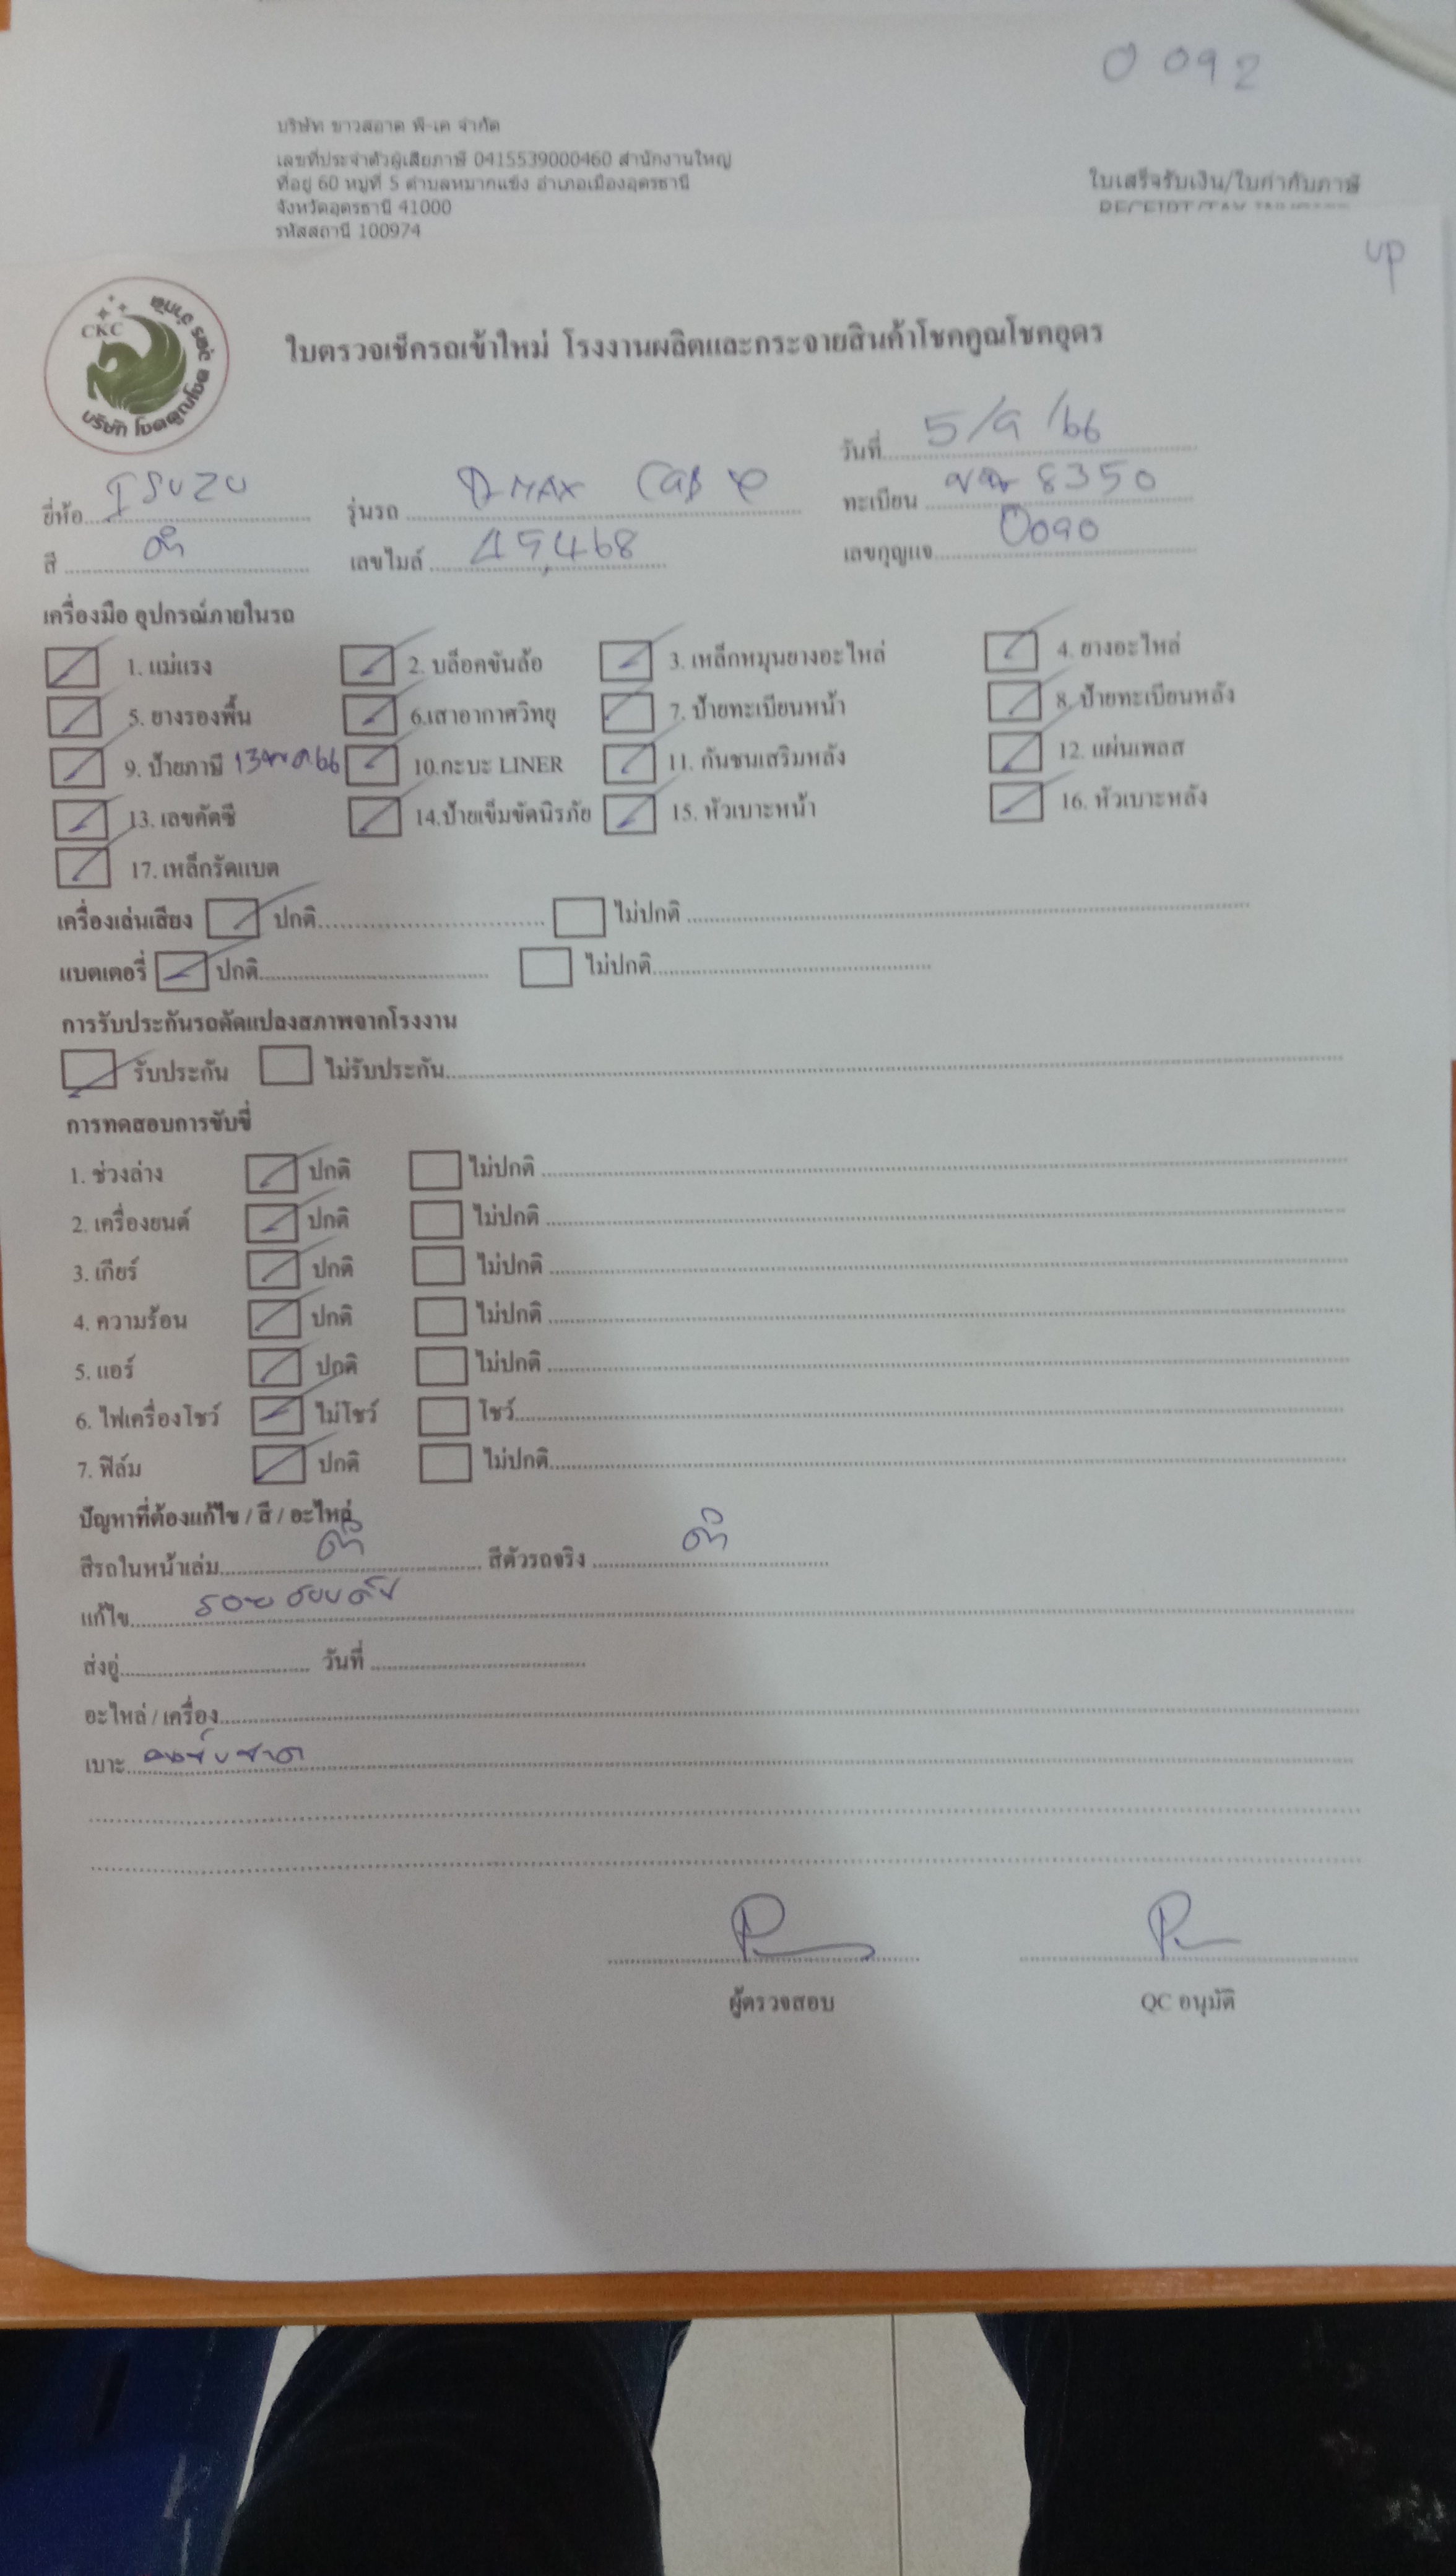 0 092
บริษัท ขาวสอาด พี-เค จำกัด
เลขที่ประจำตัวผู้เสียภาษี 0415539000460 สำนักงานใหญ่
ที่อยู่ 60 หมู่ที่ 5 ตำบลหมากแข้ง อำเภอเมืองอุดรธานี
จังหวัดอุดรธานี 41000
รหัสสถานี 100974
ใบเสร็จรับเงิน/ใบกำกับภาษี
UP
CKC
บริษัท โชคคูณโชค อุดร จำกัด
ใบตรวจเช็ครถเข้าใหม่ โรงงานผลิตและกระจายสินค้าโชคคูณโชคอุดร
วันที่ 5/9/66
ยี่ห้อ ISUZU รุ่นรถ D-MAX CAB 4 ทะเบียน 8350
สี ดำ เลขไมล์ 45,468 เลขกุญแจ 0090
เครื่องมือ อุปกรณ์ภายในรถ
1. แม่แรง 2. บล็อคขันล้อ 3. เหล็กหมุนยางอะไหล่ 4. ยางอะไหล่
5. ยางรองพื้น 6.เสาอากาศวิทยุ 7. ป้ายทะเบียนหน้า 8. ป้ายทะเบียนหลัง
9. ป้ายภาษี 13 66 10.กะบะ LINER 11. กันชนเสริมหลัง 12. แผ่นเพลส
13. เลขคัตซี 14.ป้ายเข็มขัดนิรภัย 15. หัวเบาะหน้า 16. หัวเบาะหลัง
17. เหล็กรัดแบต
เครื่องเล่นเสียง ปกติ ไม่ปกติ
แบตเตอรี่ ปกติ ไม่ปกติ
การรับประกันรถดัดแปลงสภาพจากโรงงาน
รับประกัน ไม่รับประกัน
การทดสอบการขับขี่
1. ช่วงล่าง ปกติ ไม่ปกติ
2. เครื่องยนต์ ปกติ ไม่ปกติ
3. เกียร์ ปกติ ไม่ปกติ
4. ความร้อน ปกติ ไม่ปกติ
5. แอร์ ปกติ ไม่ปกติ
6. ไฟเครื่องโชว์ ไม่โชว์ โชว์
7. ฟิล์ม ปกติ ไม่ปกติ
ปัญหาที่ต้องแก้ไข / สี / อะไหล่
สีรถในหน้าเล่ม ดำ สีตัวรถจริง ดำ
แก้ไข รอบคัน
ส่งอู่ วันที่
อะไหล่ / เครื่อง
เบาะ คนขับขาด
ผู้ตรวจสอบ QC อนุมัติ